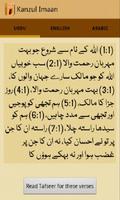 Kanzul Imaan
URDU ENGLISH ARABIC
(1:1) اللہ کے نام سے شروع جو بہت
مہربان رحمت والا (2:1) سب خوبیاں
اللہ کو جو مالک سارے جہان والوں کا،
(3:1) بہت مہربان رحمت والا، (4:1)
روز جزا کا مالک، (5:1) ہم تجھی کو
پوجیں اور تجھی سے مدد چاہیں،
(6:1) ہم کو سیدھا راستہ چلا، (7:1)
راستہ ان کا جن پر تو نے احسان کیا، نہ
ان کا جن پر غضب ہوا اور نہ بہکے
ہوؤں کا
Read Tafseer for these verses